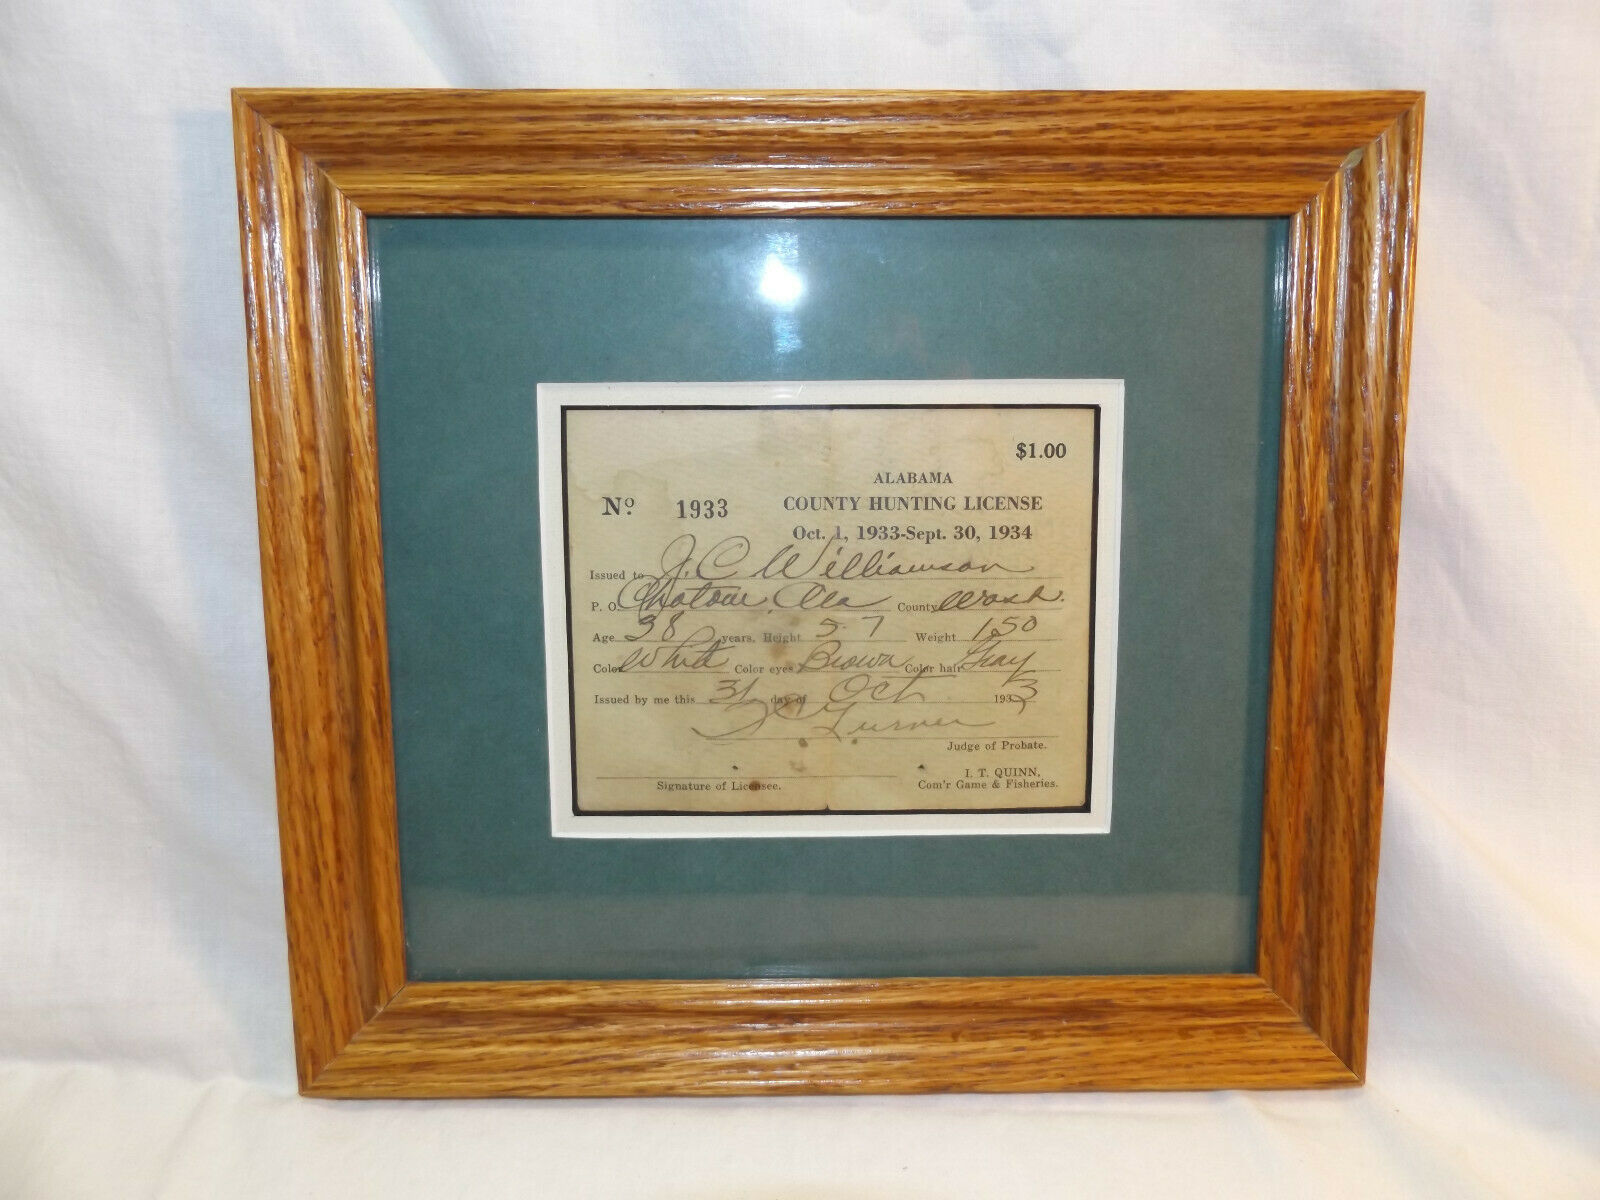 $1.00
ALABAMA
No. 1933 COUNTY HUNTING LICENSE
Oct. 1, 1933-Sept. 30, 1934
Issued to J. C Williamson
P. O. Chatom, Ala County Wash.
Age 38 years, Height 5-7 Weight 150
Color White Color eyes Brown Color hair Gray
Issued by me this 31 day of Oct 1933
Turner
Judge of Probate.
I. T. QUINN,
Signature of Licensee. Com'r Game & Fisheries.